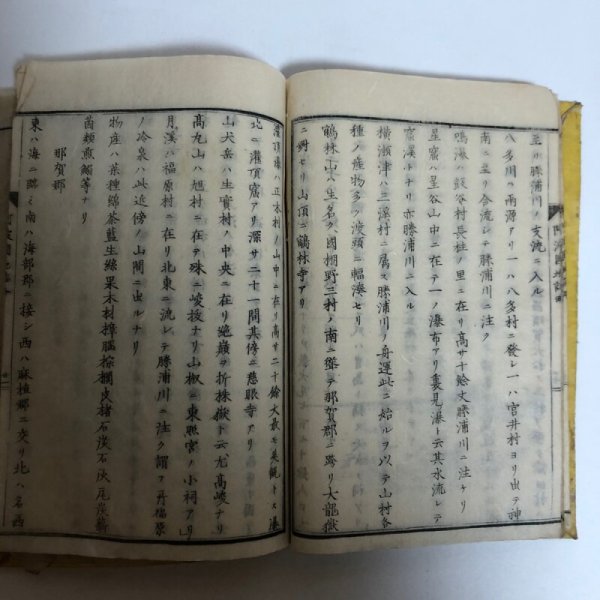 至リ勝浦川ノ支流ニ入ル
八多川ハ兩源アリ一ハ八多村ニ發シ一ハ宮井村ヨリ出テ神
南ニ至リ合流シテ勝浦川ニ注ク
鳴瀑ハ鈙谷村長柱ノ里ニ在リ高サ十餘丈勝浦川ニ注ケリ
星窟ハ星谷山中ニ在テ一ノ瀑布アリ裏見瀑ト云其水流レテ
窟溪トナリ亦勝浦川ニ入ル
橫瀨津ハ三溪村ニ屬ス勝浦川ノ舟運此ニ始ルヲ以テ山村各
種ノ產物多ク渡頭ニ輻湊セリ
鶴林山ハ生名久國棚野三村ノ南ニ跨テ那賀郡ニ跨リ大龍嶽
ニ對セリ山頂ニ鶴林寺アリ
灌頂瀑ハ正木村ノ山中ニ在リ高サ二十餘丈最モ美觀トス瀑
北ニ灌頂窟アリ深サ二十一間其傍ニ慈眼寺アリ
山犬岳ハ生實村ノ中央ニ在リ絶巓ヲ折株嶽ト云尤高峻ナリ
高丸山ハ旭村ニ在テ殊ニ峻拔ナリ山椒ニ東照宮ノ小祠アリ
月溪ハ福原村ニ在リ北東ニ流レテ勝浦川ニ注ク謂フ所福原
ノ冷泉ハ此近傍ノ山間ニ出ルナリ
物產ハ葉種綿茶藍生絲果木材樟腦棕櫚皮楮石炭石灰瓦炭薪
菌類煎餬等ナリ
那賀郡
東ハ海ニ臨ミ南ハ海部郡ニ接シ西ハ麻植郷ニ交リ北ハ名西